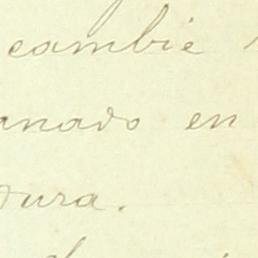 cambie
anado en
ura.